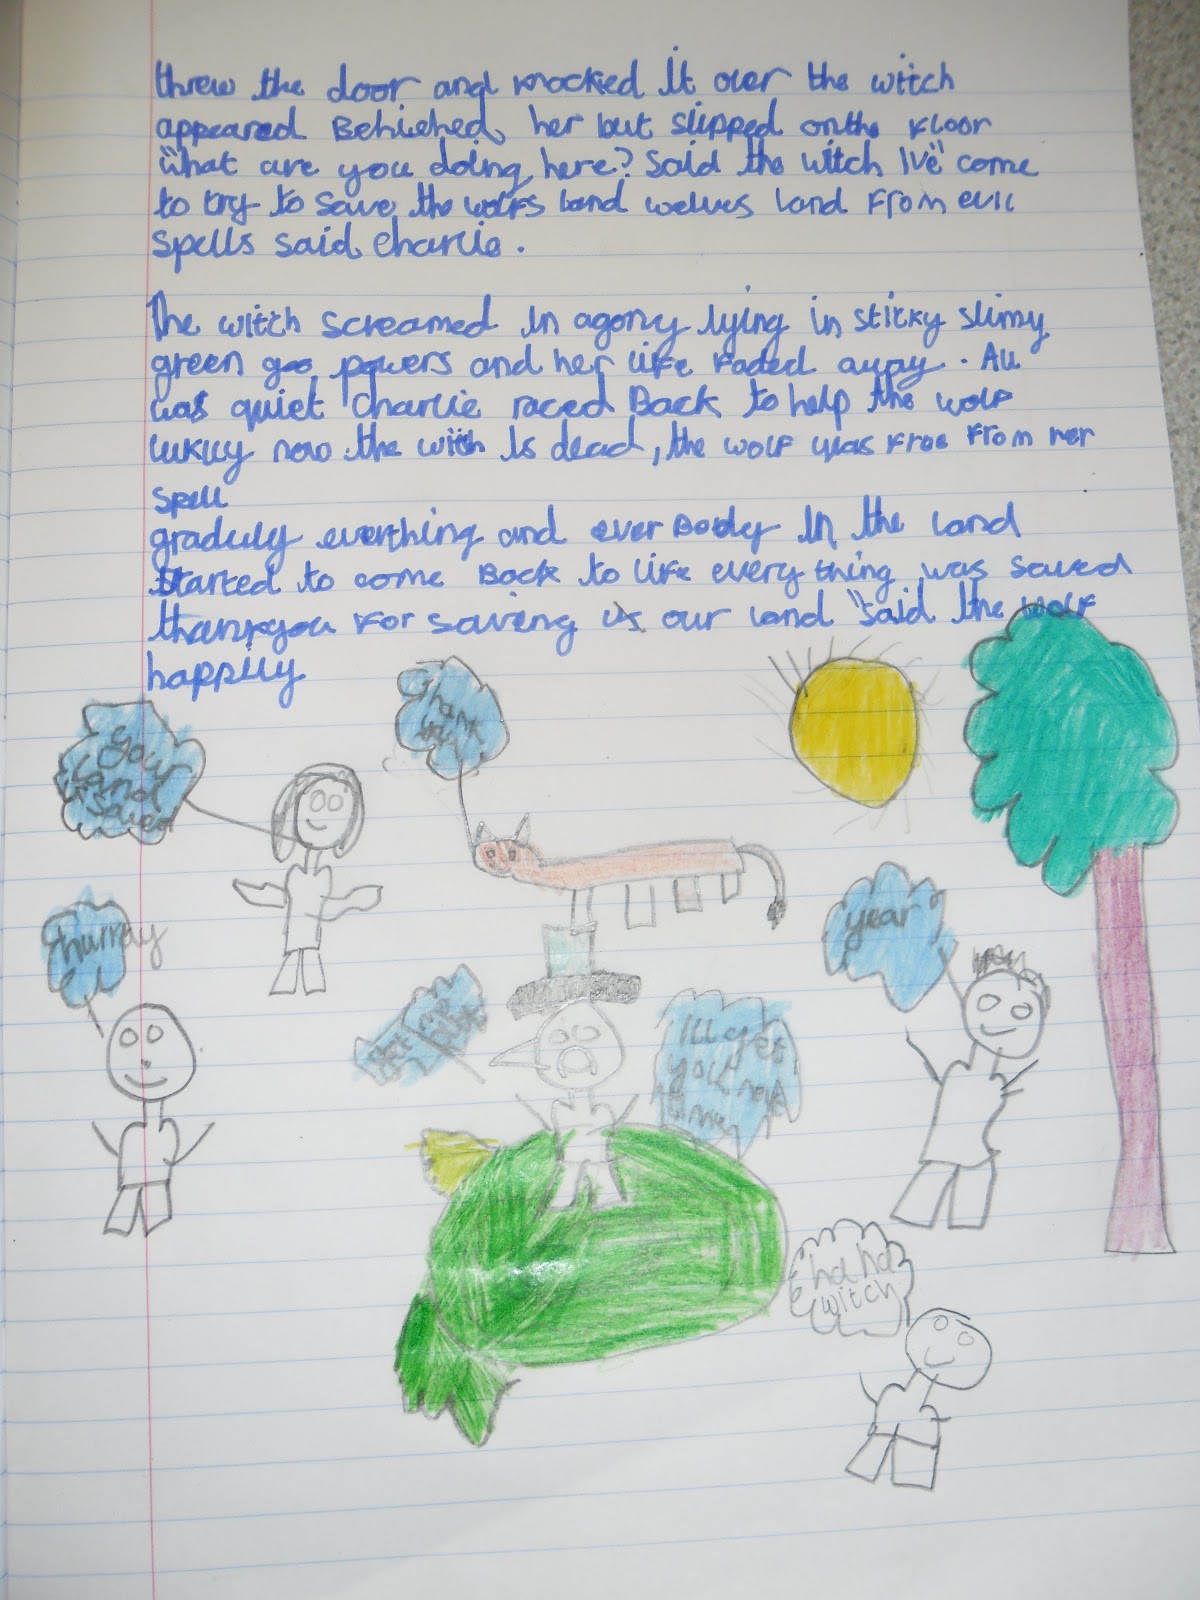 threw the door and knocked it over the witch
appeared Behiehed her but slipped on the floor
"what are you doing here? Said the witch I've" come
to try to save the wolfs land welves land From evil
spells said Charlie.
The witch screamed in agony lying in sticky slimy
green goo powers and her life Faded away. All
was quiet Charlie raced Back to help the wolf
lukily now the witch is dead, the wolf was Free From her
spell
graduly everthing and ever Body in the land
started to come Back to life every thing was saved
thankyou For saving us our land "said the wolf
happily
thank
you
your
land
saved
hurray
year
let me
I'll get
you next
time
ha ha
witch